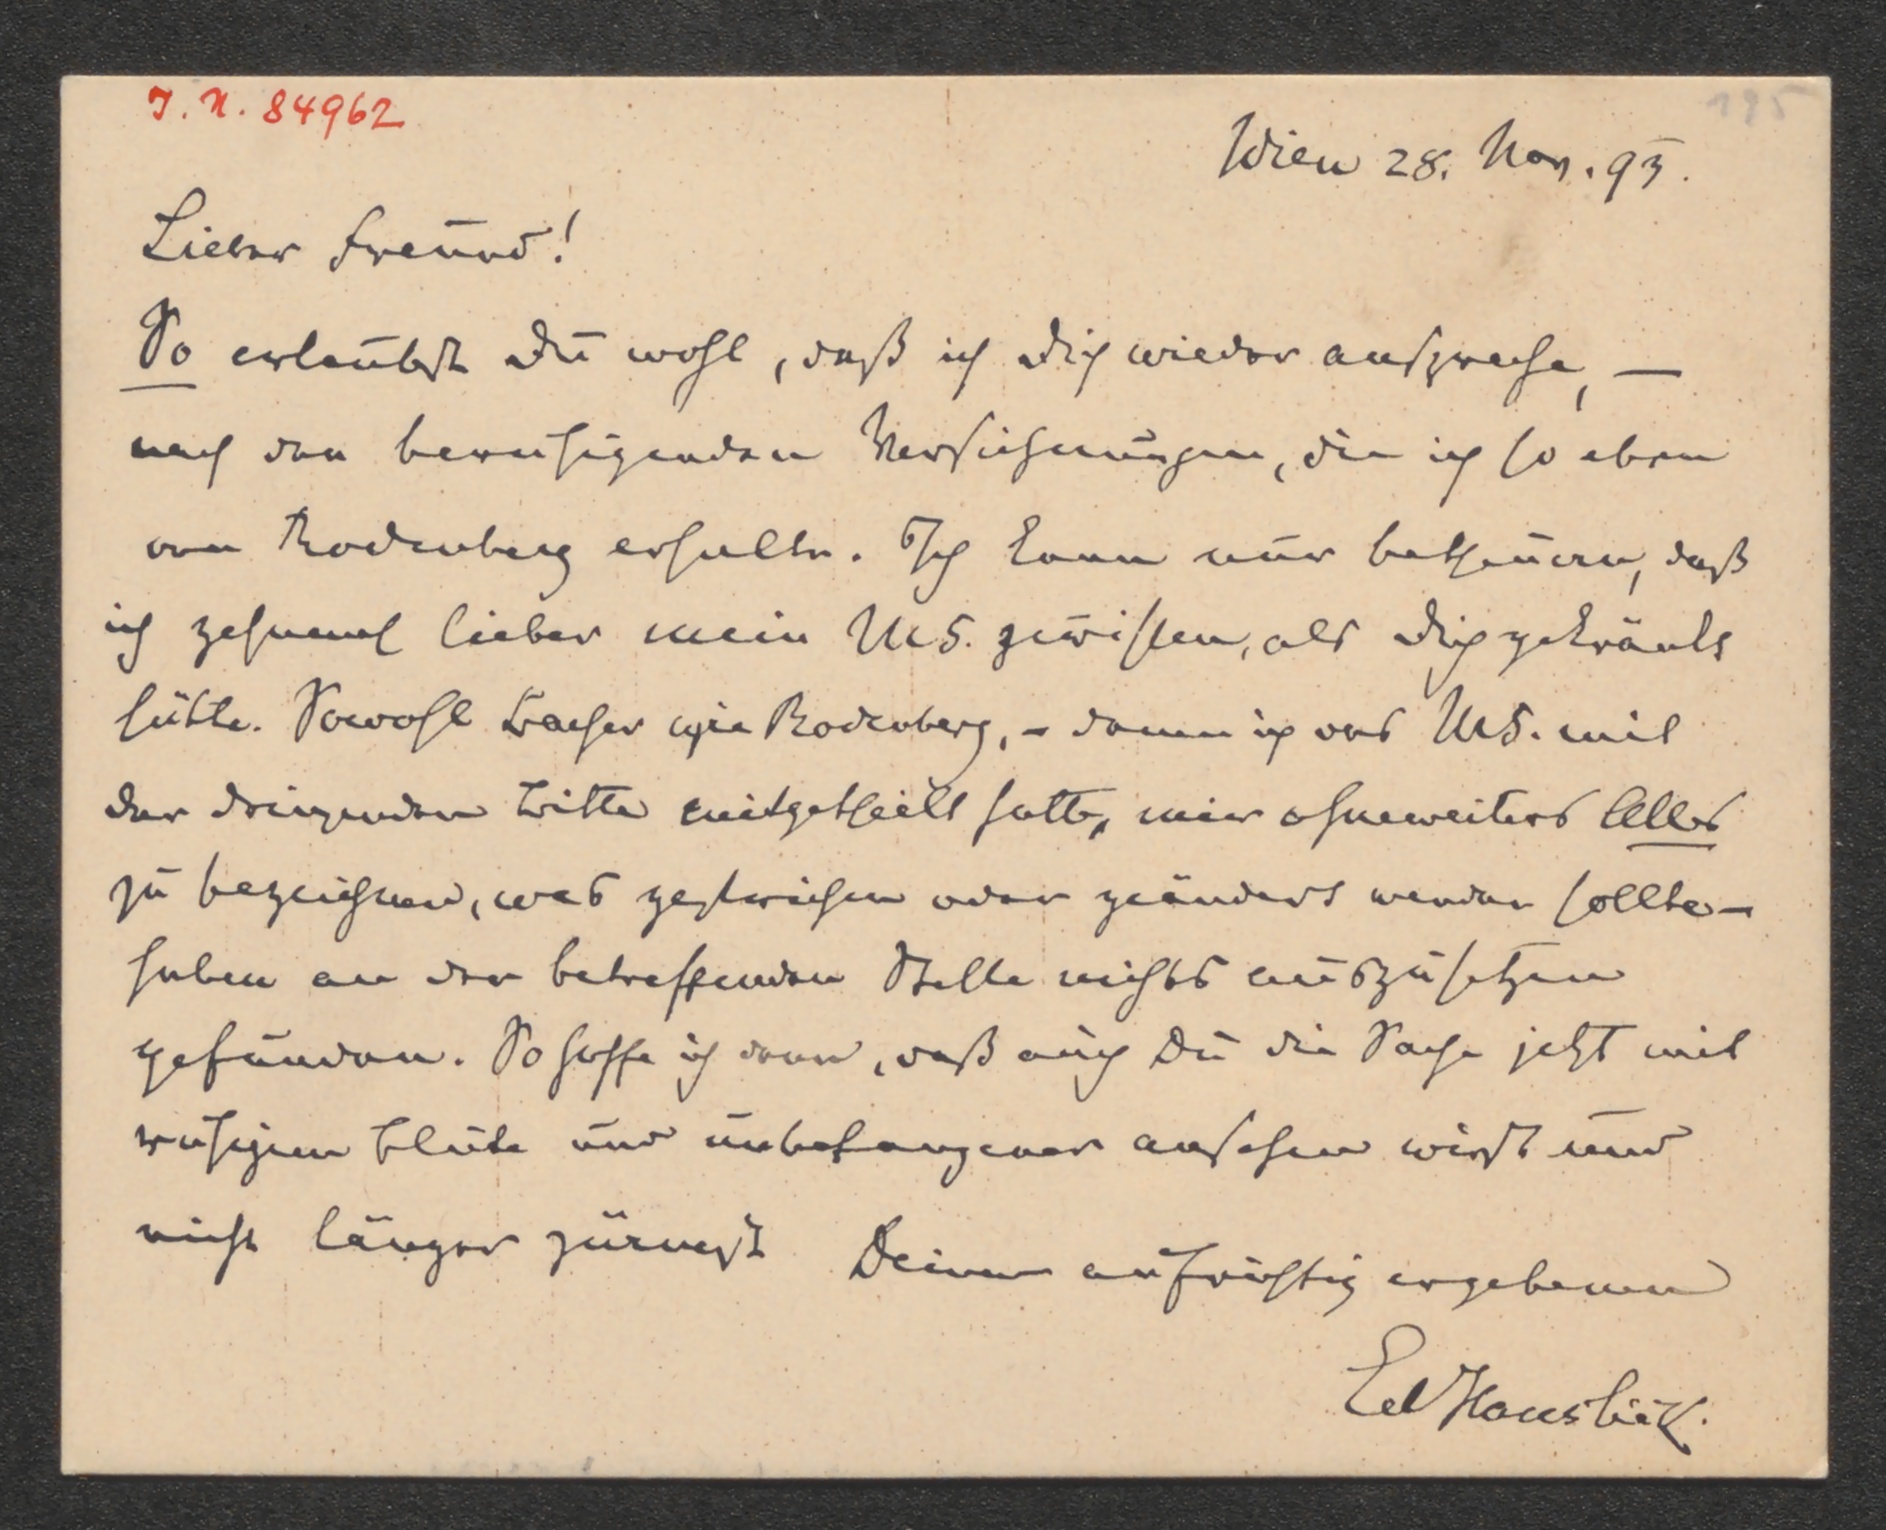 J. N. 84962
195
Wien 28. Nov. 93.
Lieber Freund!
So erlaubst Du wohl, daß ich Dich wieder anspreche, —
nach den beruhigenden Versicherungen, die ich so eben
von Rodenberg erhalte. Ich kann nur betheuern, daß
ich zehnmal lieber mein MS. zerrissen, als Dich gekränkt
hätte. Sowohl Bacher wie Rodenberg, – denen ich das MS. mit
der dringenden Bitte mitgetheilt hatte, mir ohneweiters Alles
zu bezeichnen, was gestrichen oder geändert werden sollte –
haben an der betreffenden Stelle nichts auszusetzen
gefunden. So hoffe ich denn, daß auch Du die Sache jetzt mit
ruhigem Blute und unbefangener ansehen wirst und
nicht länger zürnest Deinem aufrichtig ergebenen
Ed Hanslick.